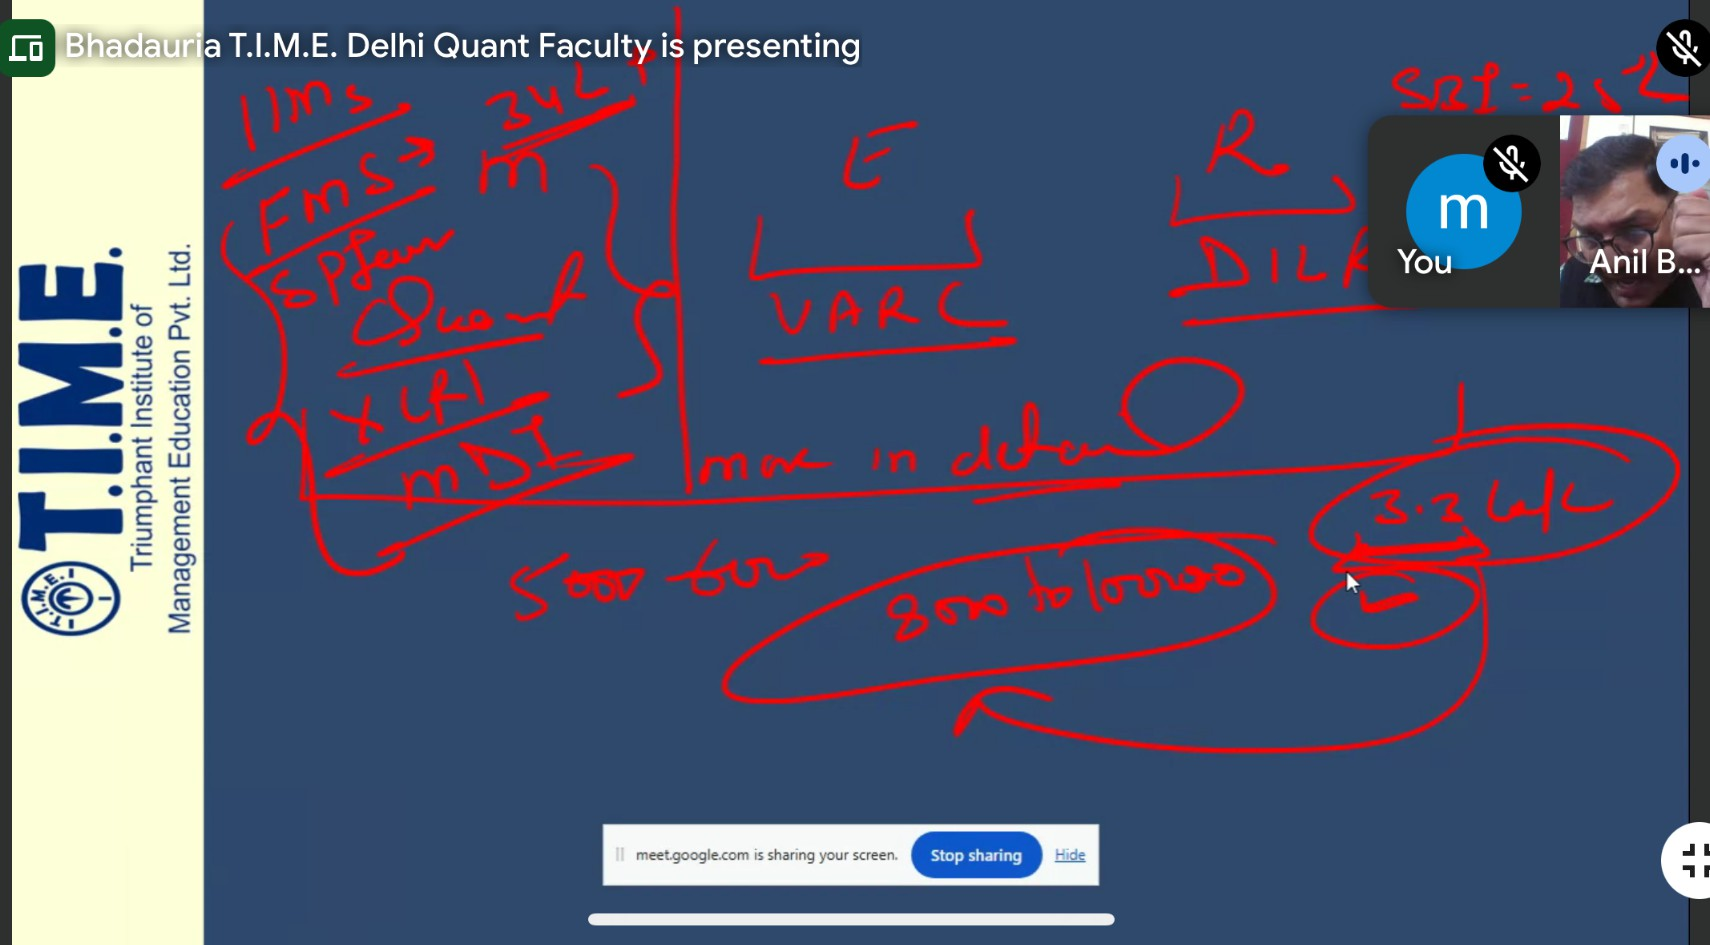 Bhadauria T.I.M.E. Delhi Quant Faculty is presenting
T.I.M.E.
Triumphant Institute of
Management Education Pvt. Ltd.
T.I.M.E.
IIMs
FMS → 34L+
M
SPJain
Quant
XLRI
MDI
E
VARC
R
DILR
SBI =
more in detail
3.3 Lakh
5000
8000 to 10000
m
You
Anil B...
meet.google.com is sharing your screen.
Stop sharing
Hide